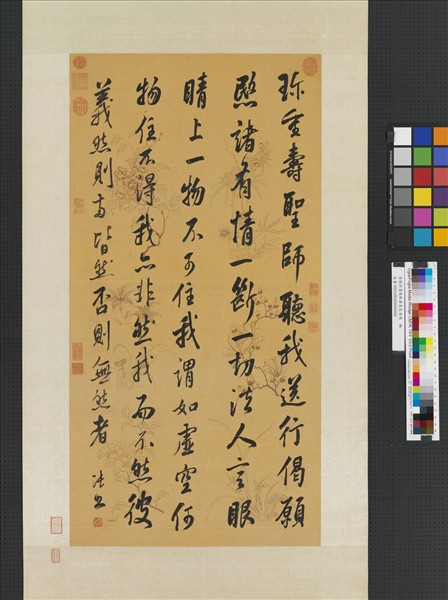 珍重壽聖師聽我送行偈願
愍諸有情一斷一切法人言眼
睛上一物不可住我謂如虛空何
物住不得我亦非然我而不然彼
義然則兩皆然否則無然者
張照